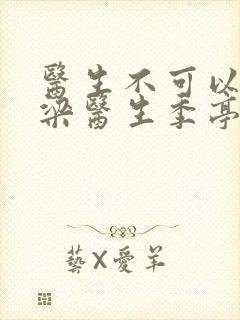 醫生不可以
梁醫生季亭
藝X愛羊